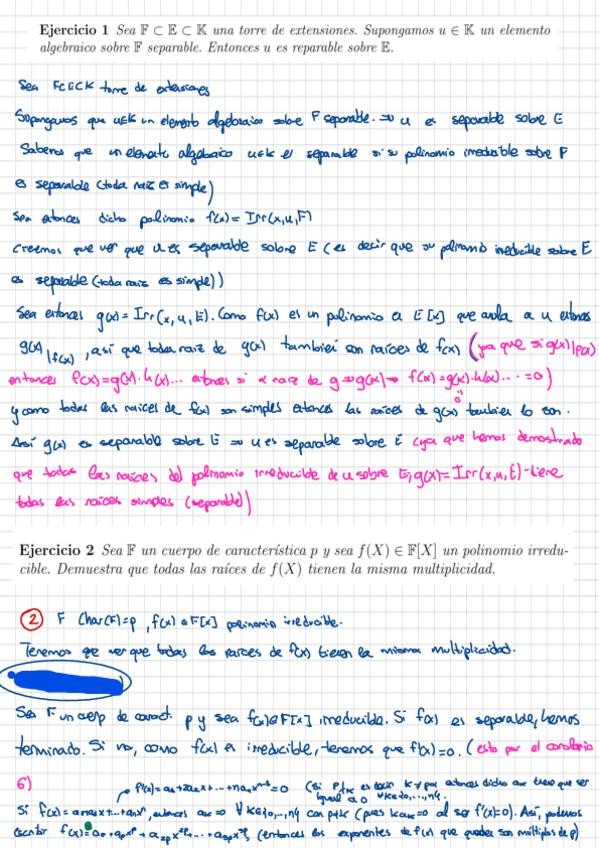 Ejercicio 1 Sea F ⊂ E ⊂ K una torre de extensiones. Supongamos u ∈ K un elemento
algebraico sobre F separable. Entonces u es reparable sobre E.
Sea F⊂E⊂K torre de extensiones
Supongamos que u∈K un elemento algebraico sobre F separable. ⇒ u es separable sobre E
Sabemos que un elemento algebraico u∈K es separable si su polinomio irreducible sobre F
es separable (toda raíz es simple)
Sea entonces dicho polinomio f(x) = Irr(x,u,F)
Creemos que ver que u es separable sobre E (es decir que su polinomio irreducible sobre E
es separable (toda raíz es simple))
Sea entonces g(x) = Irr(x,u,E). Como f(x) es un polinomio a E[x] que anula a u entonces
g(x)|f(x), así que toda raíz de g(x) también son raíces de f(x) (ya que si g(x)|f(x)
entonces f(x)=g(x)·h(x)... entonces si α raíz de g ⇒ g(α) ⇒ f(α)=g(α)·h(α)...=0)
0
y como todas las raíces de f(x) son simples entonces las raíces de g(x) también lo son.
Así g(x) es separable sobre E ⇒ u es separable sobre E (ya que hemos demostrado
que todas las raíces del polinomio irreducible de u sobre E, g(x)=Irr(x,u,E) tiene
todas las raíces simples (separable))
Ejercicio 2 Sea F un cuerpo de característica p y sea f(X) ∈ F[X] un polinomio irredu-
cible. Demuestra que todas las raíces de f(X) tienen la misma multiplicidad.
2 F Char(F)=p, f(x) ∈ F[x] polinomio irreducible.
Tenemos que ver que todas las raíces de f(x) tienen la misma multiplicidad.
Sea F un cuerpo de caract. p y sea f(x)∈F[x] irreducible. Si f(x) es separable, hemos
terminado. Si no, como f(x) es irreducible, tenemos que f'(x)=0. (esto por el corolario
6)
f'(x)=a₁+2a₂x+...+naₙxⁿ⁻¹=0 (si p∤k es decir k≠p entonces dicho tiene que ser
igual a 0 ∀k∈{0,...,n}.
Si f(x)= a₀+a₁x+...+aₙxⁿ, entonces aₖ=0 ∀k∈{0,...,n} con p∤k (pues kaₖ=0 al ser f'(x)=0). Así, podemos
escribir f(x)=a₀+aₚxᵖ+a₂ₚx²ᵖ+...+aₛₚxˢᵖ, (entonces los exponentes de f(x) que quedan son múltiplos de p)